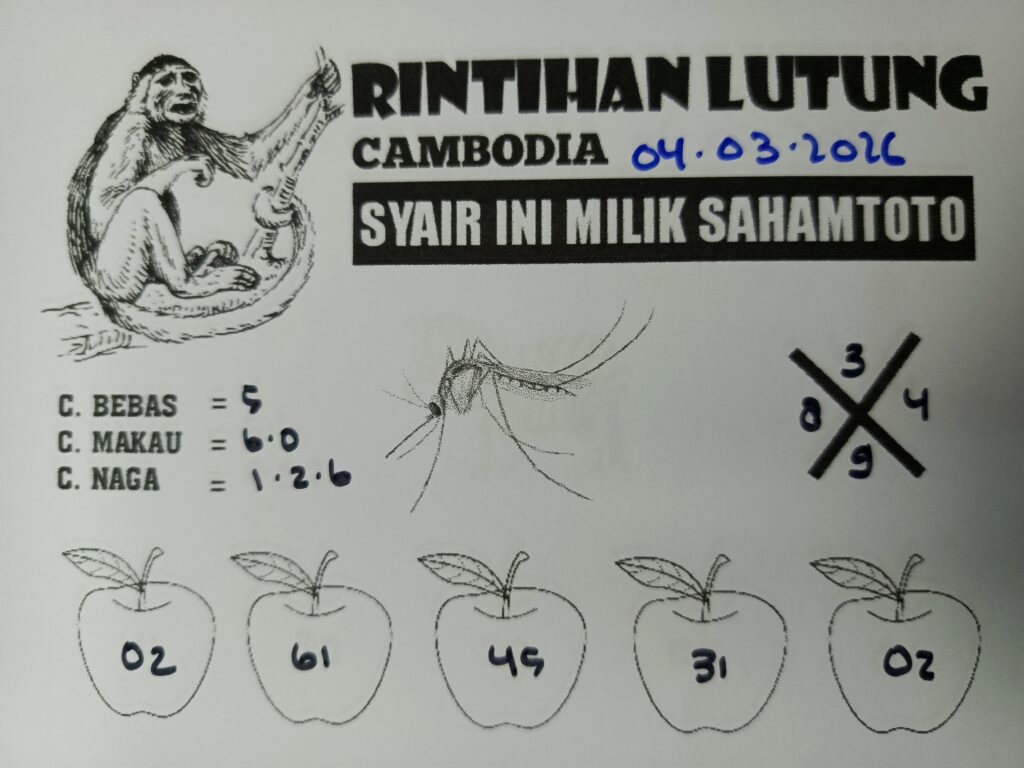 RINTIHAN LUTUNG
CAMBODIA 04.03.2026
SYAIR INI MILIK SAHAMTOTO
3
8 4
9
C. BEBAS = 5
C. MAKAU = 6.0
C. NAGA = 1.2.6
02 61 45 31 02